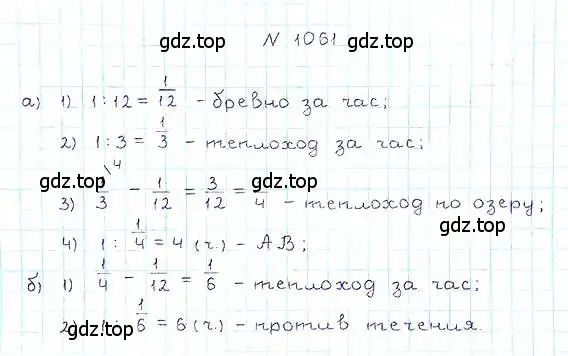 gdz.top
N 1061
gdz.top
а) 1) 1 : 12 = 1/12 - бревно за час;
2) 1 : 3 = 1/3 - теплоход за час;
gdz.top
gdz.top
3) 1/3 \4 - 1/12 = 3/12 = 1/4 - теплоход по озеру;
4) 1 : 1/4 = 4 (ч.) - АВ;
б) 1) 1/4 - 1/12 = 1/6 - теплоход за час;
2) 1 : 1/6 = 6 (ч.) - против течения.
gdz.top
gdz.top